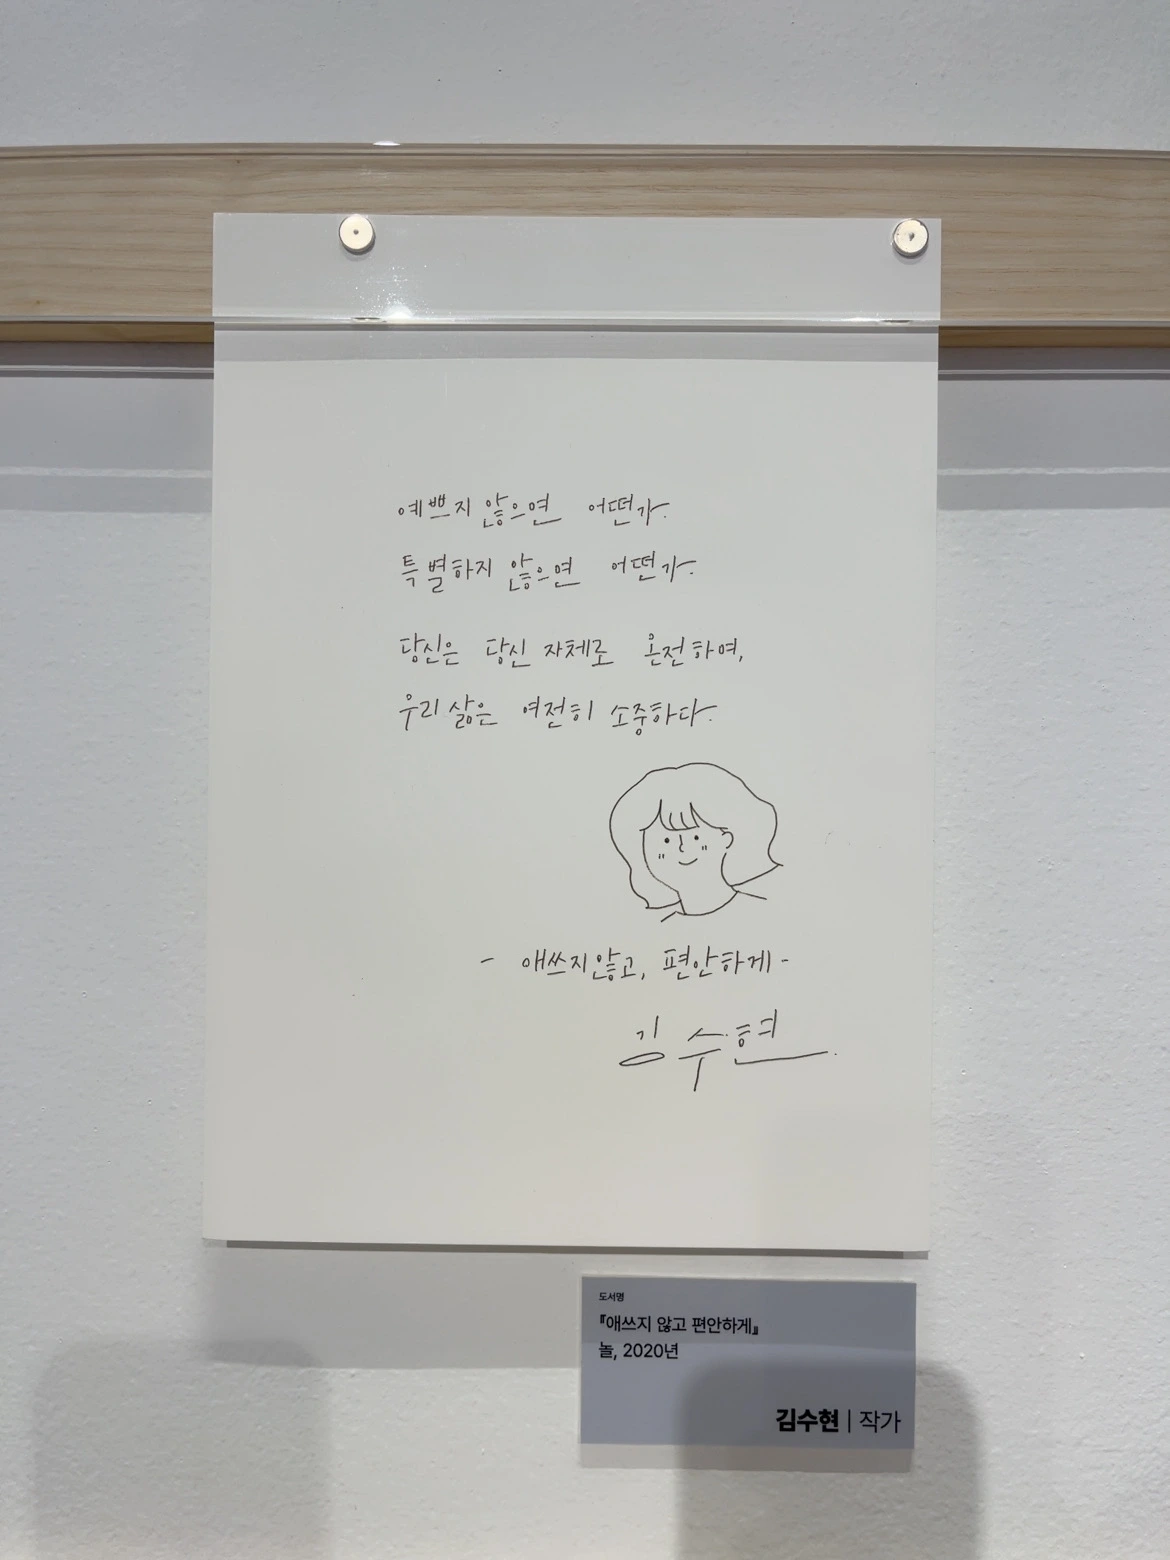 예쁘지 않으면 어떤가.
특별하지 않으면 어떤가.
당신은 당신 자체로 온전하며,
우리 삶은 여전히 소중하다.
- 애쓰지않고, 편안하게-
김수현.
도서명
『애쓰지 않고 편안하게』
놀, 2020년
김수현 | 작가